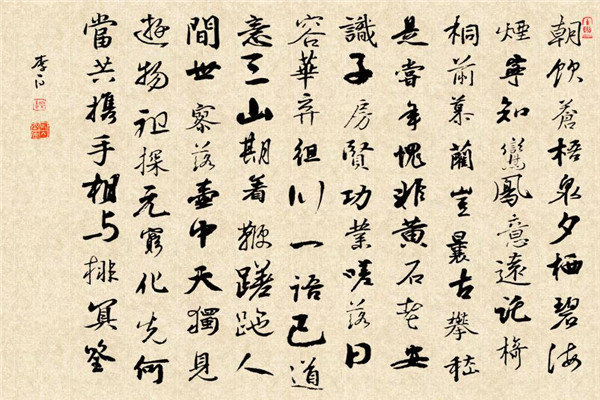 朝飲蒼梧泉夕栖碧海
煙寧知鸞鳳意遠託椅
桐前慕藺豈曩古攀嵇
是當年愧非黄石老安
識子房賢功業嗟落日
容華弃徂川一語已道
意三山期着鞭蹉跎人
間世寥落壺中天獨見
遊物祖探元窮化先何
當共携手相与排冥筌
李白